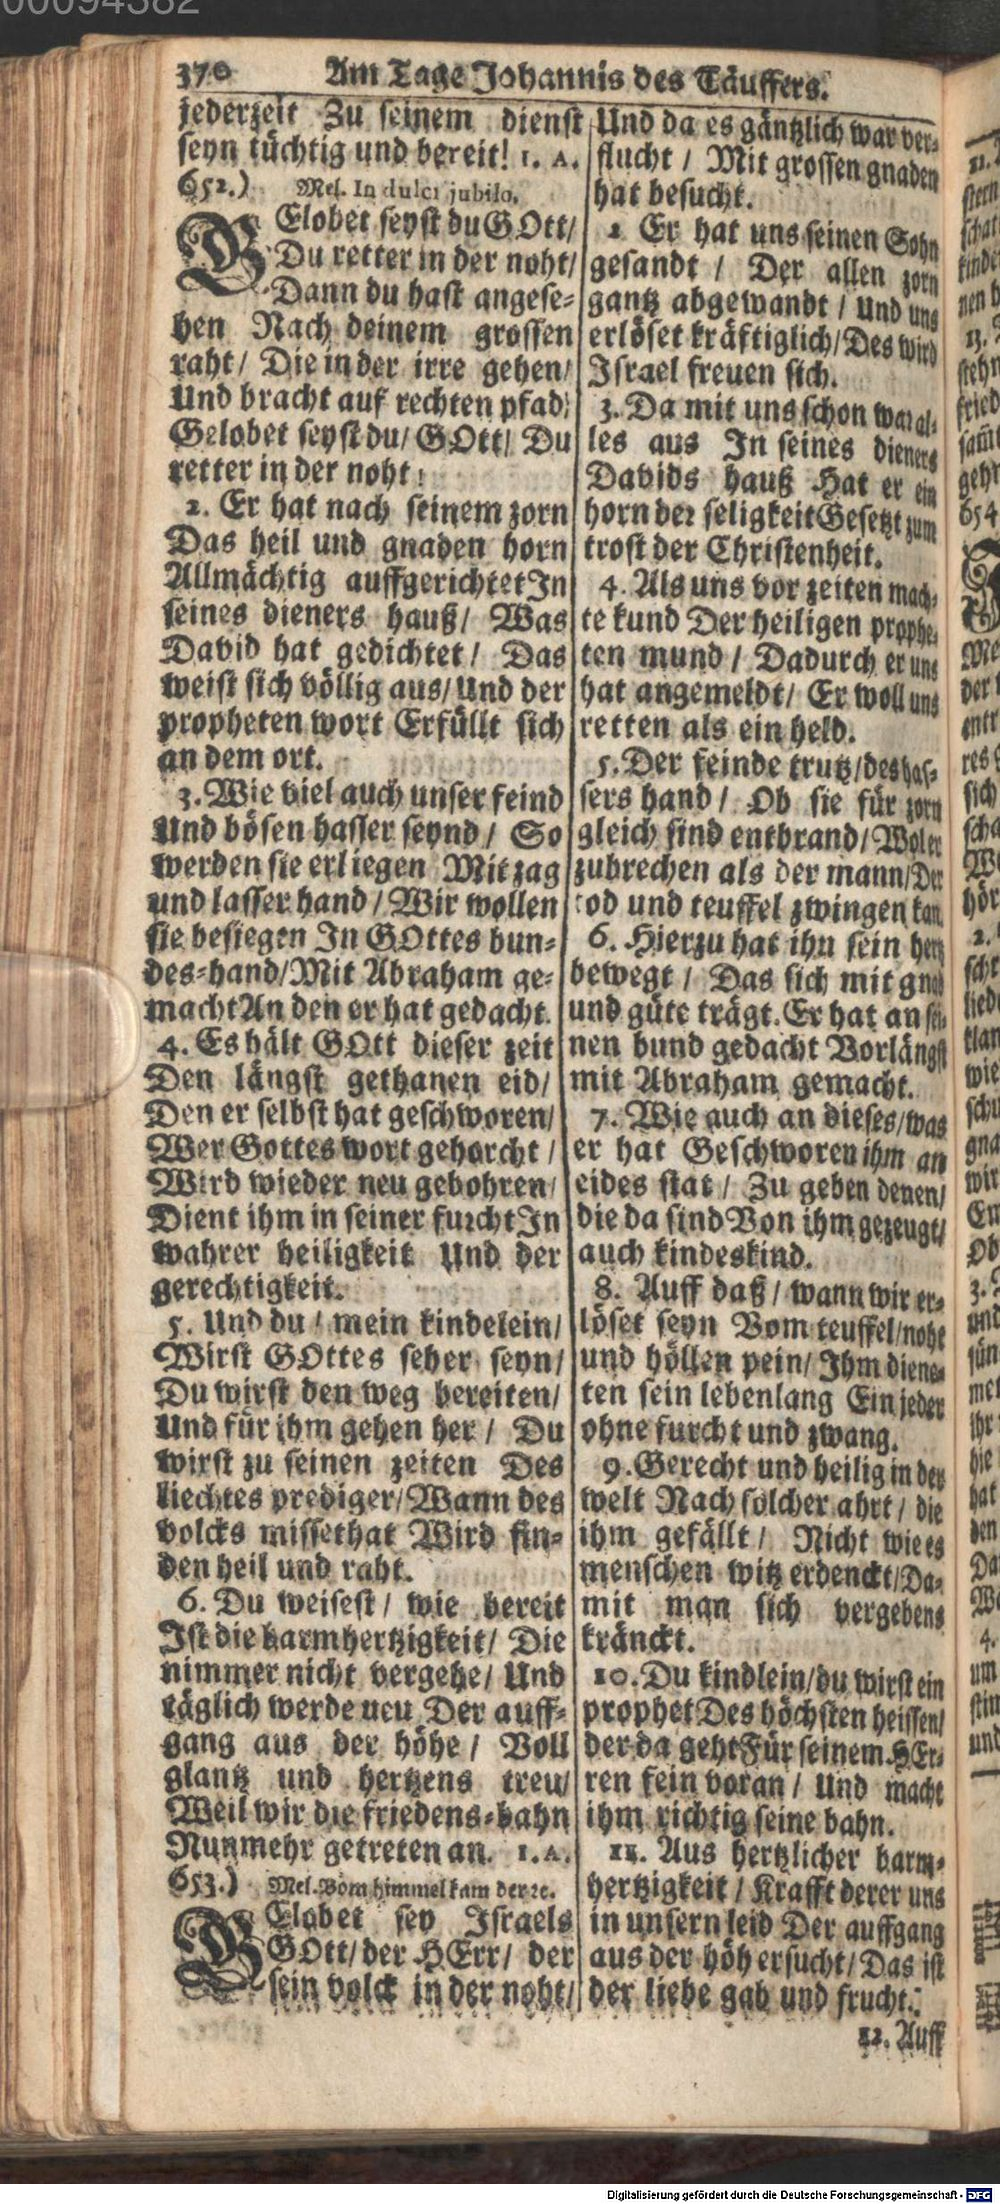 00094382
370 Am Tage Johannis des Täuffers.
jederzeit Zu seinem dienst
seyn tüchtig und bereit! 1. A.
652.) Mel. In dulci jubilo.
GElobet seyst du GOtt/
Du retter in der noht/
Dann du hast angese-
hen Nach deinem grossen
raht/ Die in der irre gehen/
Und bracht auf rechten pfad:
Gelobet seyst du/ GOtt/ Du
retter in der noht!
2. Er hat nach seinem zorn
Das heil und gnaden horn
Allmächtig auffgerichtet In
seines dieners hauß/ Was
David hat gedichtet/ Das
weist sich völlig aus/ Und der
propheten wort Erfüllt sich
an dem ort.
3. Wie viel auch unser feind
Und bösen hasser seynd/ So
werden sie erliegen Mit zag
und lasser hand/ Wir wollen
sie besiegen In GOttes bun-
des-hand/ Mit Abraham ge-
macht An den er hat gedacht.
4. Es hält GOtt dieser zeit
Den längst gethanen eid/
Den er selbst hat geschworen/
Wer Gottes wort gehorcht/
Wird wieder neu gebohren/
Dient ihm in seiner furcht In
wahrer heiligkeit Und der
gerechtigkeit.
5. Und du/ mein kindelein/
Wirst GOttes seher seyn/
Du wirst den weg bereiten/
Und für ihm gehen her/ Du
wirst zu seinen zeiten Des
liechtes prediger/ Wann des
volcks missethat Wird fin-
den heil und raht.
6. Du weisest/ wie bereit
Ist die barmhertzigkeit/ Die
nimmer nicht vergehe/ Und
täglich werde neu Der auff-
gang aus der höhe/ Voll
glantz und hertzens treu/
Weil wir die friedens-bahn
Nunmehr getreten an. 1. A.
653.) Mel. Vom himmel kam der ꝛc.
GElobet sey Israels
GOtt/ der HErr/ der
sein volck in der noht/
Und da es gäntzlich war ver-
flucht/ Mit grossen gnaden
hat besucht.
2 Er hat uns seinen Sohn
gesandt/ Der allen zorn
gantz abgewandt/ Und uns
erlöset kräftiglich/ Des wird
Israel freuen sich.
3. Da mit uns schon war al-
les aus In seines dieners
Davids hauß Hat er ein
horn der seligkeit Gesetzt zum
trost der Christenheit.
4. Als uns vor zeiten mach-
te kund Der heiligen prophe-
ten mund/ Dadurch er uns
hat angemeldt/ Er woll uns
retten als ein held.
5. Der feinde trutz/ des has-
sers hand/ Ob sie für zorn
gleich sind entbrand/ Wol er
zubrechen als der mann/ Der
tod und teuffel zwingen kan.
6. Hierzu hat ihn sein hertz
bewegt/ Das sich mit gnad
und güte trägt. Er hat an sei-
nen bund gedacht Vorlängst
mit Abraham gemacht.
7. Wie auch an dieses/ was
er hat Geschworen ihm an
eides stat/ Zu geben denen/
die da sind Von ihm gezeugt/
auch kindeskind.
8. Auff daß/ wann wir er-
löset seyn Vom teuffel/ noht
und höllen pein/ Ihm diene-
ten sein lebenlang Ein jeder
ohne furcht und zwang.
9. Gerecht und heilig in der
welt Nach solcher ahrt/ die
ihm gefällt/ Nicht wie es
menschen witz erdenckt/ Da-
mit man sich vergebens
kränckt.
10. Du kindlein/ du wirst ein
prophet Des höchsten heissen/
der da geht Für seinem HEr-
ren fein voran/ Und macht
ihm richtig seine bahn.
11. Aus hertzlicher barm-
hertzigkeit/ Krafft derer uns
in unsern leid Der auffgang
aus der höh ersucht/ Das ist
der liebe gab und frucht.
12. Auff
Digitalisierung gefördert durch die Deutsche Forschungsgemeinschaft - DFG